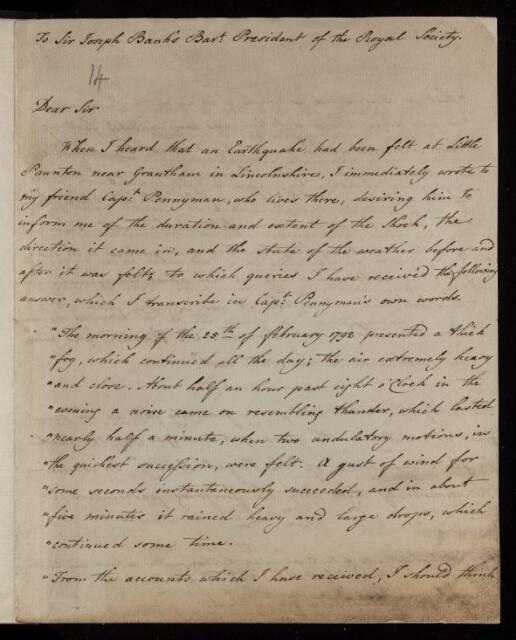 To Sir Joseph Bank's Bart. President of the Royal Society.
14
Dear Sir
When I heard that an Earthquake had been felt at Little
Paunton near Grantham in Lincolnshire, I immediately wrote to
my friend Capt. Pennyman, who lives there, desiring him to
inform me of the duration and extent of the Shock, the
direction it came in, and the state of the weather before and
after it was felt; to which queries I have received the following
answer, which I transcribe in Capt. Pennyman's own words.
"The morning of the 25th of february 1792 presented a thick
"fog, which continued all the day; the air extremely heavy
"and close. About half an hour past eight o'Clock in the
"evening a noise came on resembling thunder, which lasted
"nearly half a minute, when two undulatory motions, in
"the quickest succession, were felt. A gust of wind for
"some seconds instantaneously succeeded, and in about
"five minutes it rained heavy and large drops, which
"continued some time.
"From the accounts which I have received, I should think